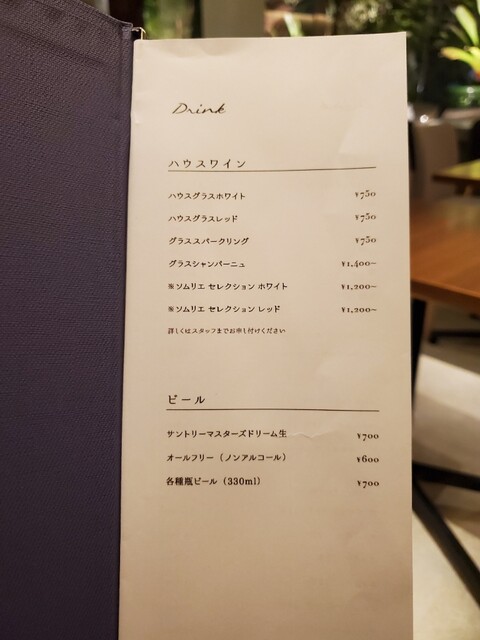 Drink
ハウスワイン
ハウスグラスホワイト ¥750
ハウスグラスレッド ¥750
グラススパークリング ¥750
グラスシャンパーニュ ¥1,400~
※ソムリエ セレクション ホワイト ¥1,200~
※ソムリエ セレクション レッド ¥1,200~
詳しくはスタッフまでお申し付けください
ビール
サントリーマスターズドリーム生 ¥700
オールフリー（ノンアルコール） ¥600
各種瓶ビール（330ml） ¥700